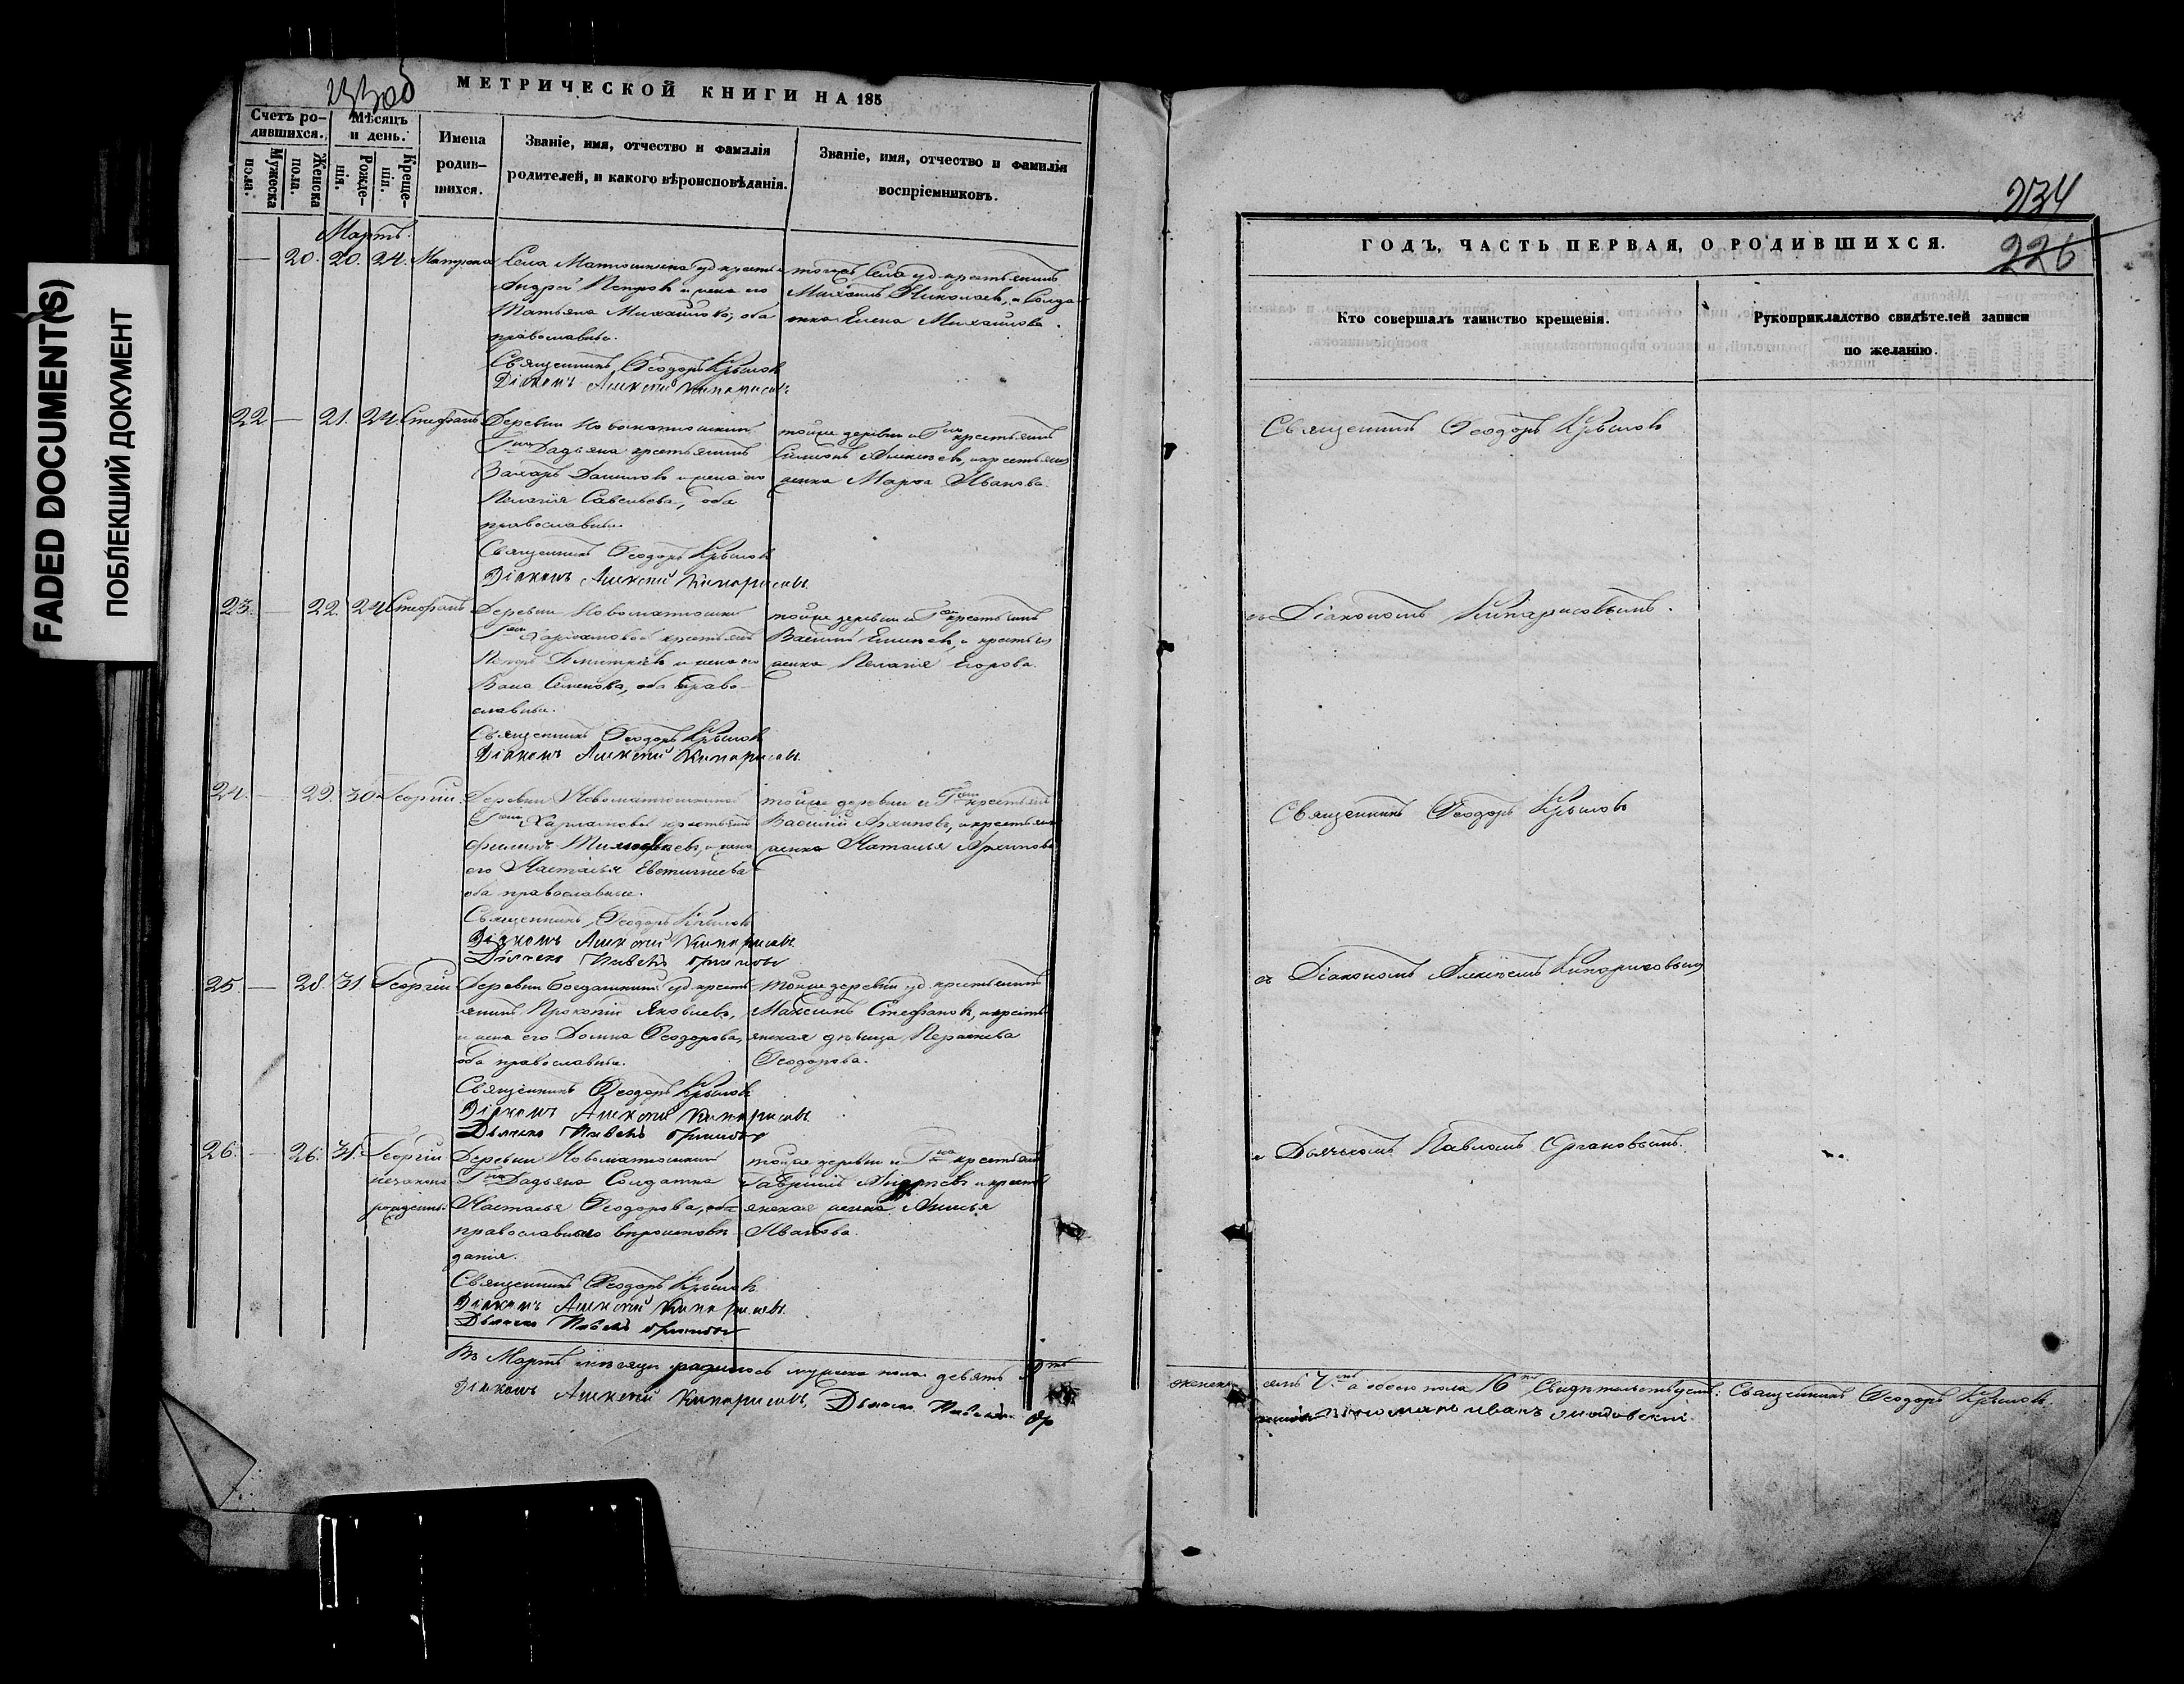 FADED DOCUMENT(S)
ПОБЛЕКШИЙ ДОКУМЕНТ
233об
МЕТРИЧЕСКОЙ КНИГИ НА 185
Счетъ ро-
дившихся.
Мѣсяцъ
и день.
Мужеска
пола.
Женска
пола.
Рожде-
нія.
Креще-
нія.
Имена
родив-
шихся.
Званіе, имя, отчество и фамилія
родителей, и какого вѣроисповѣданія.
Званіе, имя, отчество и фамилія
воспріемниковъ.
Мартъ.
— 20. 20. 24. Матрона
Села Матюшкина уд. крестья
Андрей Петровъ и жена его
Татьяна Михайлова, оба
православные.
Священникъ Ѳеодоръ Крыловъ
Діаконъ Алексѣй Кипарисовъ
тогоже Села уд. крестьянинъ
Михаилъ Николаевъ, и Солдат
тка Елена Михайлова.
22 — 21. 24. Стефанъ
Деревни Новоматюшкиной
Гна Дадьяна крестьянинъ
Захаръ Даниловъ и жена его
Пелагія Савельева, оба
православные.
Священникъ Ѳеодоръ Крыловъ
Діаконъ Алексѣй Кипарисовъ
тойже деревни и Гна крестьянинъ
Симеонъ Алексѣевъ, и крестьян
женка Марѳа Иванова.
23. — 22. 24 Стефанъ
Деревни Новоматюшкин
Гжи Харламовой крестьянинъ
Петръ Дмитріевъ и жена его
Васса Семенова, оба право-
славные.
Священникъ Ѳеодоръ Крыловъ
Діаконъ Алексѣй Кипарисовъ
тойже деревни и Гжи крестьянинъ
Василій Елисѣевъ, и крестьян
женка Пелагія Егорова.
24. — 29. 30. Георгій.
Деревни Новоматюшкиной
Гжи Харламовой крестьянинъ
Филипъ Тимофѣевъ, и жена
его Настасья Евстигнѣева
оба православные.
Священникъ Ѳеодоръ Крыловъ
Діаконъ Алексѣй Кипарисовъ
Дьячекъ Павелъ Органовъ
тойже деревни и Гжи крестьян
Василій Архиповъ, и крестьян
женка Наталья Архипова
25. — 28. 31. Георгій
Деревни Богдашкиной уд. кресть-
янинъ Прокопій Яковлевъ,
и жена его Домна Ѳеодорова,
оба православные.
Священникъ Ѳеодоръ Крыловъ
Діаконъ Алексѣй Кипарисовъ
Дьячекъ Павелъ Органовъ
тойже деревни уд. крестьянинъ
Максимъ Стефановъ, и кресть
янская дѣвица Перасковья
Ѳеодорова.
26. — 26. 31. Георгій
незакон
рожденн.
Деревни Новоматюшкиной
Гна Дадьяна Солдатка
Настасья Ѳеодорова,
православнаго вѣроисповѣ
данія.
Священникъ Ѳеодоръ Крыловъ
Діаконъ Алексѣй Кипарисовъ
Дьячекъ Павелъ Органовъ
тойже деревни и Гна крестьян
Гавріилъ Андреевъ и кресть
янская женка Анисья
Иванова.
Въ Мартѣ мѣсяцѣ родилось мужска пола девять 9ть
Діаконъ Алексѣй Кипарисовъ, Дьячекъ Павелъ Ор
234
226
ГОДЪ, ЧАСТЬ ПЕРВАЯ, О РОДИВШИХСЯ.
Кто совершалъ таинство крещенія.
Рукоприкладство свидѣтелей записи
по желанію.
Священникъ Ѳеодоръ Крыловъ
съ Діакономъ Кипарисовымъ.
Священникъ Ѳеодоръ Крыловъ
съ Діакономъ Алексѣемъ Кипарисовымъ
и Дьячкомъ Павломъ Органовымъ.
женска семь 7мь а обоего пола 16ть Свидѣтельствуемъ: Священникъ Ѳеодоръ Крыловъ.
Пономарь Иванъ